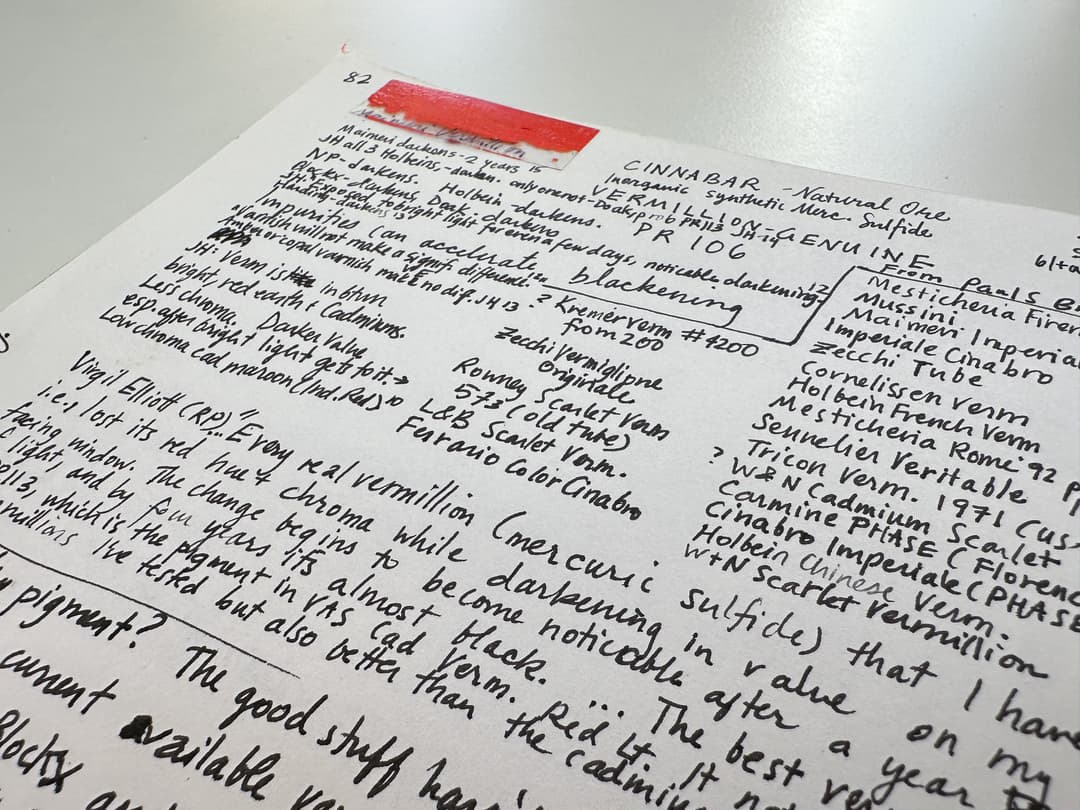 82
Maimeri Vermilion
Maimeri darkens-2 years 15
JH all 3 Holbeins,-darken. only one not-Doak, prob PR113 JH-14
NP-darkens. Holbein-darkens.
Blockx-darkens, Doak-darkens
JH: Exposed to bright light for even a few days, noticeable darkening 12
Harding-darkens 13
Impurities can accelerate blackening
Varnish will not make a signifi difference.
Amber or copal varnish made no dif. JH 13
JH: Verm is in btwn
bright, red earth & Cadmiums.
Less chroma, Darker Value
esp after bright light gets to it. →
Low chroma cad maroon (Ind. Red) 10
CINNABAR - Natural Ore
Inorganic synthetic Merc. Sulfide
VERMILLION-GENUINE
PR 106
? Kremer verm #4200
from 200
Zecchi Vermiglione
Originale
Rowney Scarlet Verm
573 (old tube)
L&B Scarlet Verm.
Ferrario Color Cinabro
From Paul's
Mesticheria Firen
Mussini
Maimeri Imperial
Imperiale Cinabro
Zecchi Tube
Cornelissen Verm
Holbein French Verm
Mesticheria Rome '92
Sennelier Veritable
Tricon Verm. 1971
? W&N Cadmium Scarlet
Carmine PHASE (Florenc
Cinabro Imperiale (PHASE
Holbein Chinese Verm.
W+N Scarlet Vermillion
Virgil Elliott (RP) "Every real vermillion (mercuric sulfide) that I have
i.e., lost its red hue & chroma while darkening in value on my
facing window. The change begins to become noticeable after a year
light, and by four years its almost black. ... The best
113, which is the pigment in VAS Cad Verm. Red Lt. It
millions I've tested but also better than the cadmiu
pigment? The good stuff
current available
Blockx